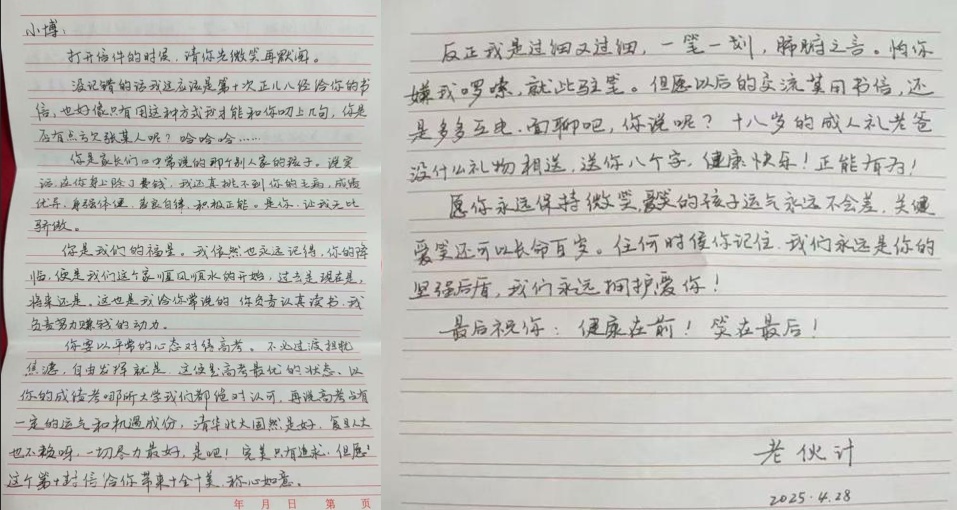 小博：
打开信件的时候，请你先微笑再默阅。
没记错的话我这应该是第十次正儿八经给你的书
信，也好像只有用这种方式我才能和你叨上几句，你是
否有点亏欠张某人呢？哈哈哈……
你是家长们口中常说的那个别人家的孩子。说实
话，在你身上除了费钱，我还真挑不到你的毛病，成绩
优异，身强体健，善良自律，积极正能。是你，让我无比
骄傲。
你是我们的福星。我依然也永远记得，你的降
临，便是我们这个家顺风顺水的开始，过去是现在是，
将来还是。这也是我给你常说的 你负责认真读书，我
负责努力赚钱的动力。
你要以平常的心态对待高考。不必过渡担忧
焦虑，自由发挥就是，这便是高考最优的状态、以
你的成绩考哪所大学我们都绝对认可，再说高考占有
一定的运气和机遇成份，清华北大固然是好，复旦人大
也不赖呀，一切尽力最好，是吧！完美只有追求，但愿
这个第十封信给你带来十全十美，称心如意。
年 月 日 第 页
反正我是过细又过细，一笔一划，肺腑之言。怕你
嫌我啰嗦，就此驻笔。但愿以后的交流莫用书信，还
是多多互电、面聊吧，你说呢？十八岁的成人礼老爸
没什么礼物相送，送你八个字，健康快乐！正能有为！
愿你永远保持微笑，爱笑的孩子运气永远不会差，关键
爱笑还可以长命百岁。任何时侯你记住，我们永远是你的
坚强后盾，我们永远拥护爱你！
最后祝你：健康在前！笑在最后！
老伙计
2025.4.28